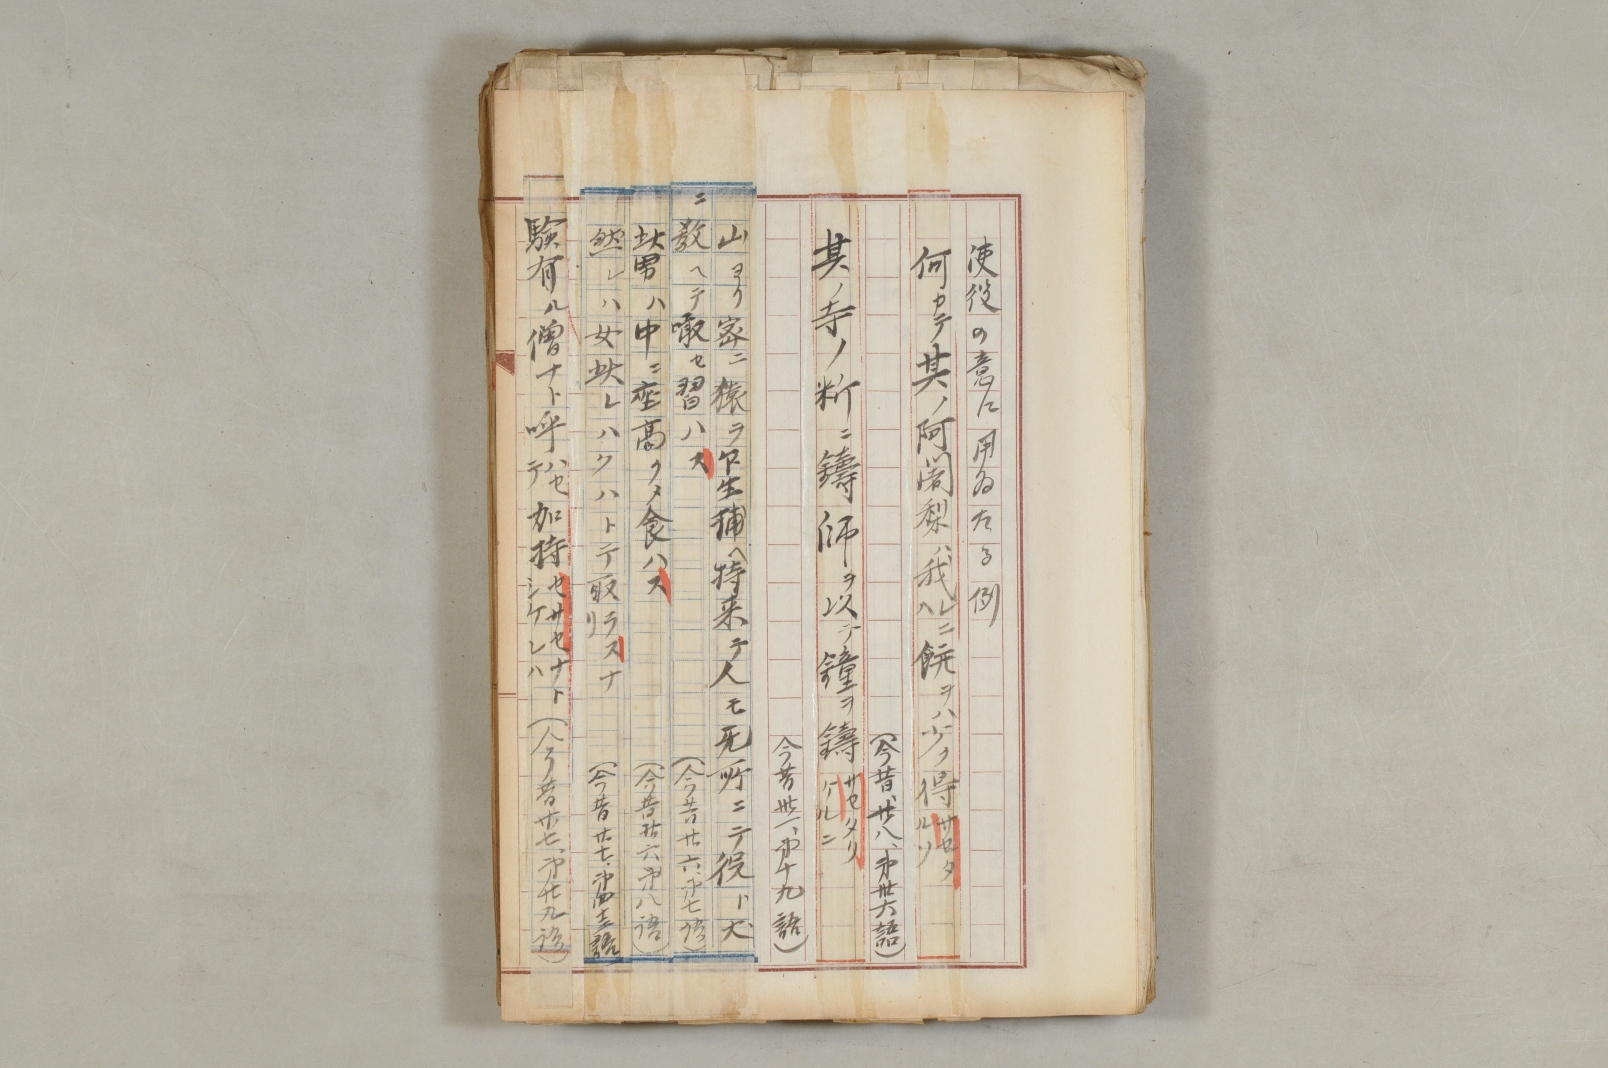 使役の意に用ゐたる例
何カテ其ノ阿闍梨ハ我レニ餅ヲハ少ク得サセタルソ
(今昔、廿八、第卅六語)
其ノ寺ノ断ニ鑄師ヲ以テ鐘ヲ鑄サセタリケルニ
今昔卅一、第十九語)
山ヨリ密ニ猿ヲ生捕ヘ持来テ人モ无所ニテ役ト犬
ニ教ヘテ噉セ習ハス (今昔廿六、第七語)
此男ハ中ニ座高クタ食ハス (今昔廿六第八語)
然レハ女此レハクハトテ取ラスナリ (今昔廿七、第四十三語)
験有ル僧ナト呼ハセテ加持セサセナトシケレハ (今昔廿七、第廿九語)